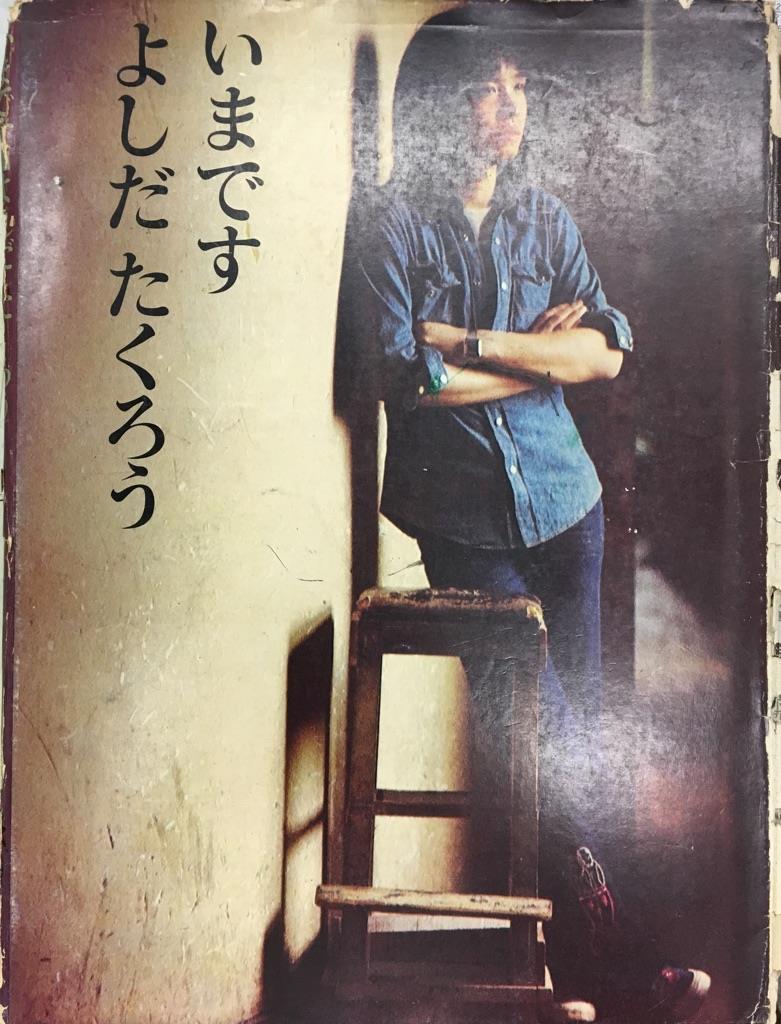 いまです
よしだ たくろう